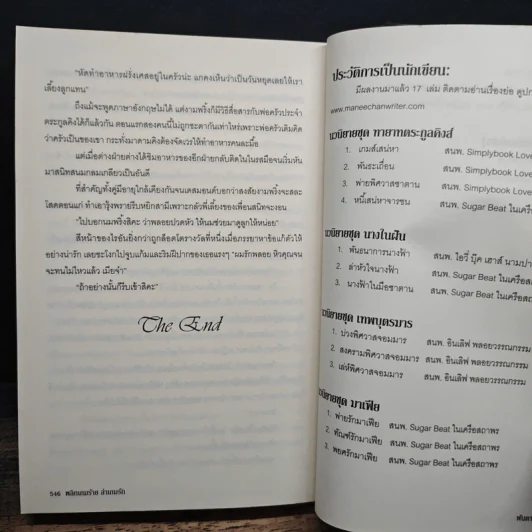 "หัดทำอาหารฝรั่งเศสอยู่ในครัวน่ะ แกคงเห็นว่าเป็นวันหยุดเลยให้เรา
เลี้ยงลูกแทน"
ถึงแม้จะพูดภาษาอังกฤษไม่ได้ แต่งามพริ้งก็มีวิธีสื่อสารกับพ่อครัวประจำ
ตระกูลคิงส์ได้ก็แล้วกัน ตอนแรกสองคนนี้ไม่ถูกชะตากันเท่าไหร่เพราะพ่อครัวเดิมคิด
ว่าครัวเป็นของเขา กระทั่งมาตามคิงต้องจัดเวรให้ทำอาหารคนละมื้อ
แต่เมื่อต่างฝ่ายต่างได้ชิมอาหารของอีกฝ่ายกลับติดใจในรสมือจนเริ่มหัน
มาสนิทสนมกลมเกลียวเป็นอันดี
ที่สำคัญทั้งคู่มีอายุใกล้เคียงกันจนเดสมอนด์บอกว่าสงสัยงามพริ้งจะสละ
โสดตอนแก่ ทำเอารุ้งพรายรีบหยิกสามีเพราะกลัวพี่เลี้ยงของเพื่อนสนิทจะงอน
"ไปบอกนมพริ้งสิคะ ว่าพลอยปวดหัว ให้นมช่วยมาดูลูกให้หน่อย"
สีหน้าของไรอันยิ่งกว่าถูกล็อตโตรางวัลที่หนึ่งเมื่อภรรยาหาข้อแก้ตัวให้
อย่างน่ารัก เลยชะโงกไปจูบแก้มและริมฝีปากของเธอแรงๆ "ผมรักพลอย หิวคุณจน
จะทนไม่ไหวแล้ว เมียจ๋า"
"ถ้าอย่างนั้นก็รีบเข้าสิคะ"
The End
546 พลิกเกมร้าย ล่าเกมรัก
ประวัติการเป็นนักเขียน:
มีผลงานมาแล้ว 17 เล่ม ติดตามอ่านเรื่องย่อ
www.maneechanwriter.com
นวนิยายชุด ทายาทตระกูลคิงส์
1. เกมส์เสน่หา สนพ. Simplybook Love
2. พันธะเถื่อน สนพ. Simplybook Love
3. พ่ายพิศวาสซาตาน สนพ. Simplybook Love
4. หนี้เสน่หาจารชน สนพ. Sugar Beat
นวนิยายชุด นางในฝัน
1. พันธนาการนางฟ้า สนพ. ไอวี่ บุ๊ค เฮาส์
2. ล่าหัวใจนางฟ้า สนพ. Sugar Beat ในเครือสถาพร
3. นางฟ้าในมือซาตาน สนพ. Sugar Beat ในเครือ
นวนิยายชุด เทพบุตรมาร
1. บ่วงพิศวาสจอมมาร สนพ. อินเลิฟ พลอยวรรณกรรม
2. สงครามพิศวาสจอมมาร สนพ. อินเลิฟ พลอยวรรณกรรม
3. เล่ห์พิศวาสจอมมาร สนพ. อินเลิฟ พลอยวรรณกรรม
นวนิยายชุด มาเฟีย
1. พ่ายรักมาเฟีย สนพ. Sugar Beat ในเครือสถาพร
2. ทัณฑ์รักมาเฟีย สนพ. Sugar Beat ในเครือสถาพร
3. พยศรักมาเฟีย สนพ. Sugar Beat ในเครือสถาพร